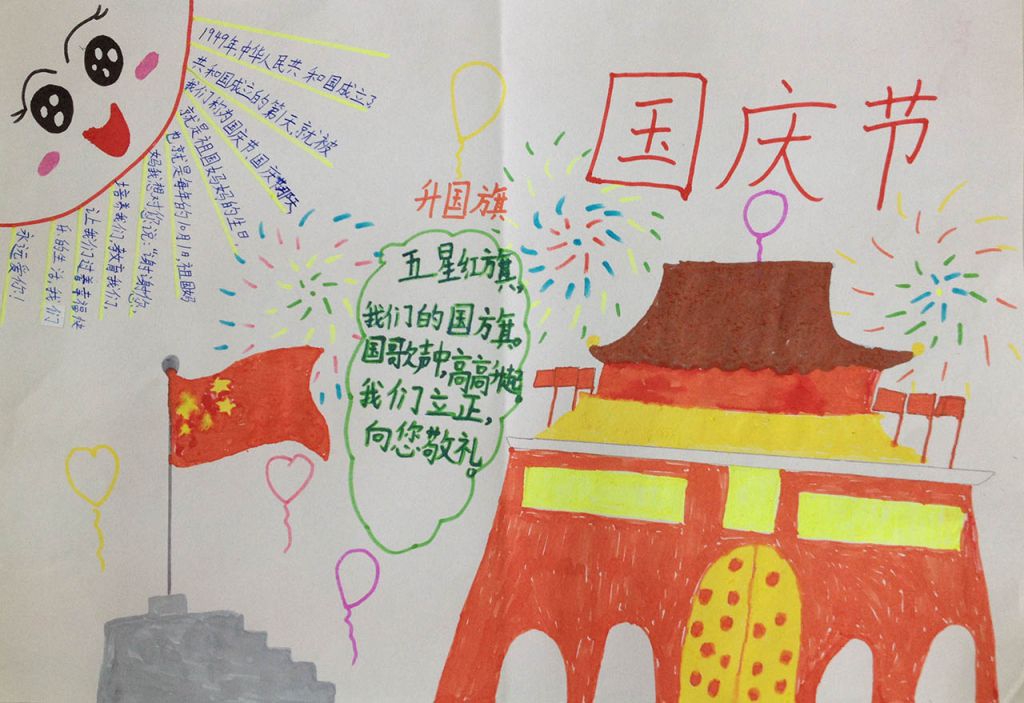 国庆节
1949年,中华人民共和国成立了
共和国成立的第1天,就被
我们称为国庆节,国庆那天
就是祖国妈妈的生日,
也就是每年的10月1日,祖国妈
妈我想对你说:“谢谢你,
培养我们,教育我们,
让我们过着幸福快
乐的生活,我们
永远爱你!
升国旗
五星红旗,
我们的国旗。
国歌声中,高高升起,
我们立正,
向您敬礼。